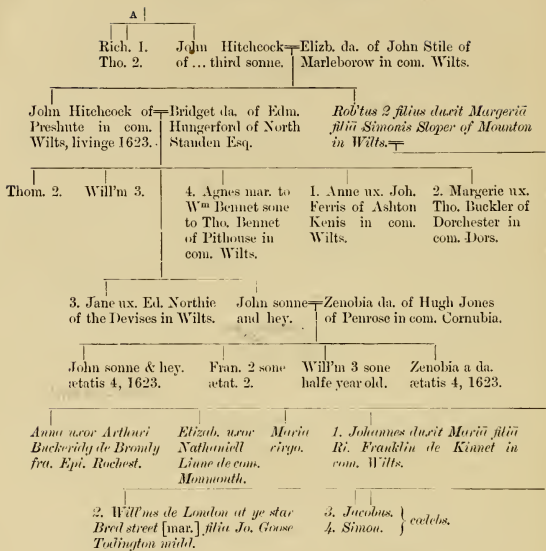 A
Rich. 1.
Tho. 2.
John Hitchcock=Elizb. da. of John Stile of
of ... third sonne. Marleborow in com. Wilts.
John Hitchcock of=Bridget da. of Edm.
Preshute in com. Hungerford of North
Wilts, livinge 1623. Standen Esq.
Rob'tus 2 filius duxit Margeriā
filiā Simonis Sloper of Mounton
in Wilts.=
Thom. 2.
Will'm 3.
4. Agnes mar. to
Wm Bennet sone
to Tho. Bennet
of Pithouse in
com. Wilts.
1. Anne ux. Joh.
Ferris of Ashton
Kenis in com.
Wilts.
2. Margerie ux.
Tho. Buckler of
Dorchester in
com. Dors.
3. Jane ux. Ed. Northie
of the Devises in Wilts.
John sonne=Zenobia da. of Hugh Jones
and hey. of Penrose in com. Cornubia.
John sonne & hey.
ætatis 4, 1623.
Fran. 2 sone
ætat. 2.
Will'm 3 sone
halfe year old.
Zenobia a da.
ætatis 4, 1623.
Anna uxor Arthuri
Buckeridg de Bromly
fra. Epi. Rochest.
Elizab. uxor
Nathaniell
Linne de com.
Monmouth.
Maria
virgo.
1. Johannes duxit Mariā filiā
Ri. Franklin de Kinnet in
com. Wilts.
2. Will'ms de London at ye star
Bred street [mar.] filia Jo. Goose
Todington midd.
3. Jacobus. } cœlebs.
4. Simon.